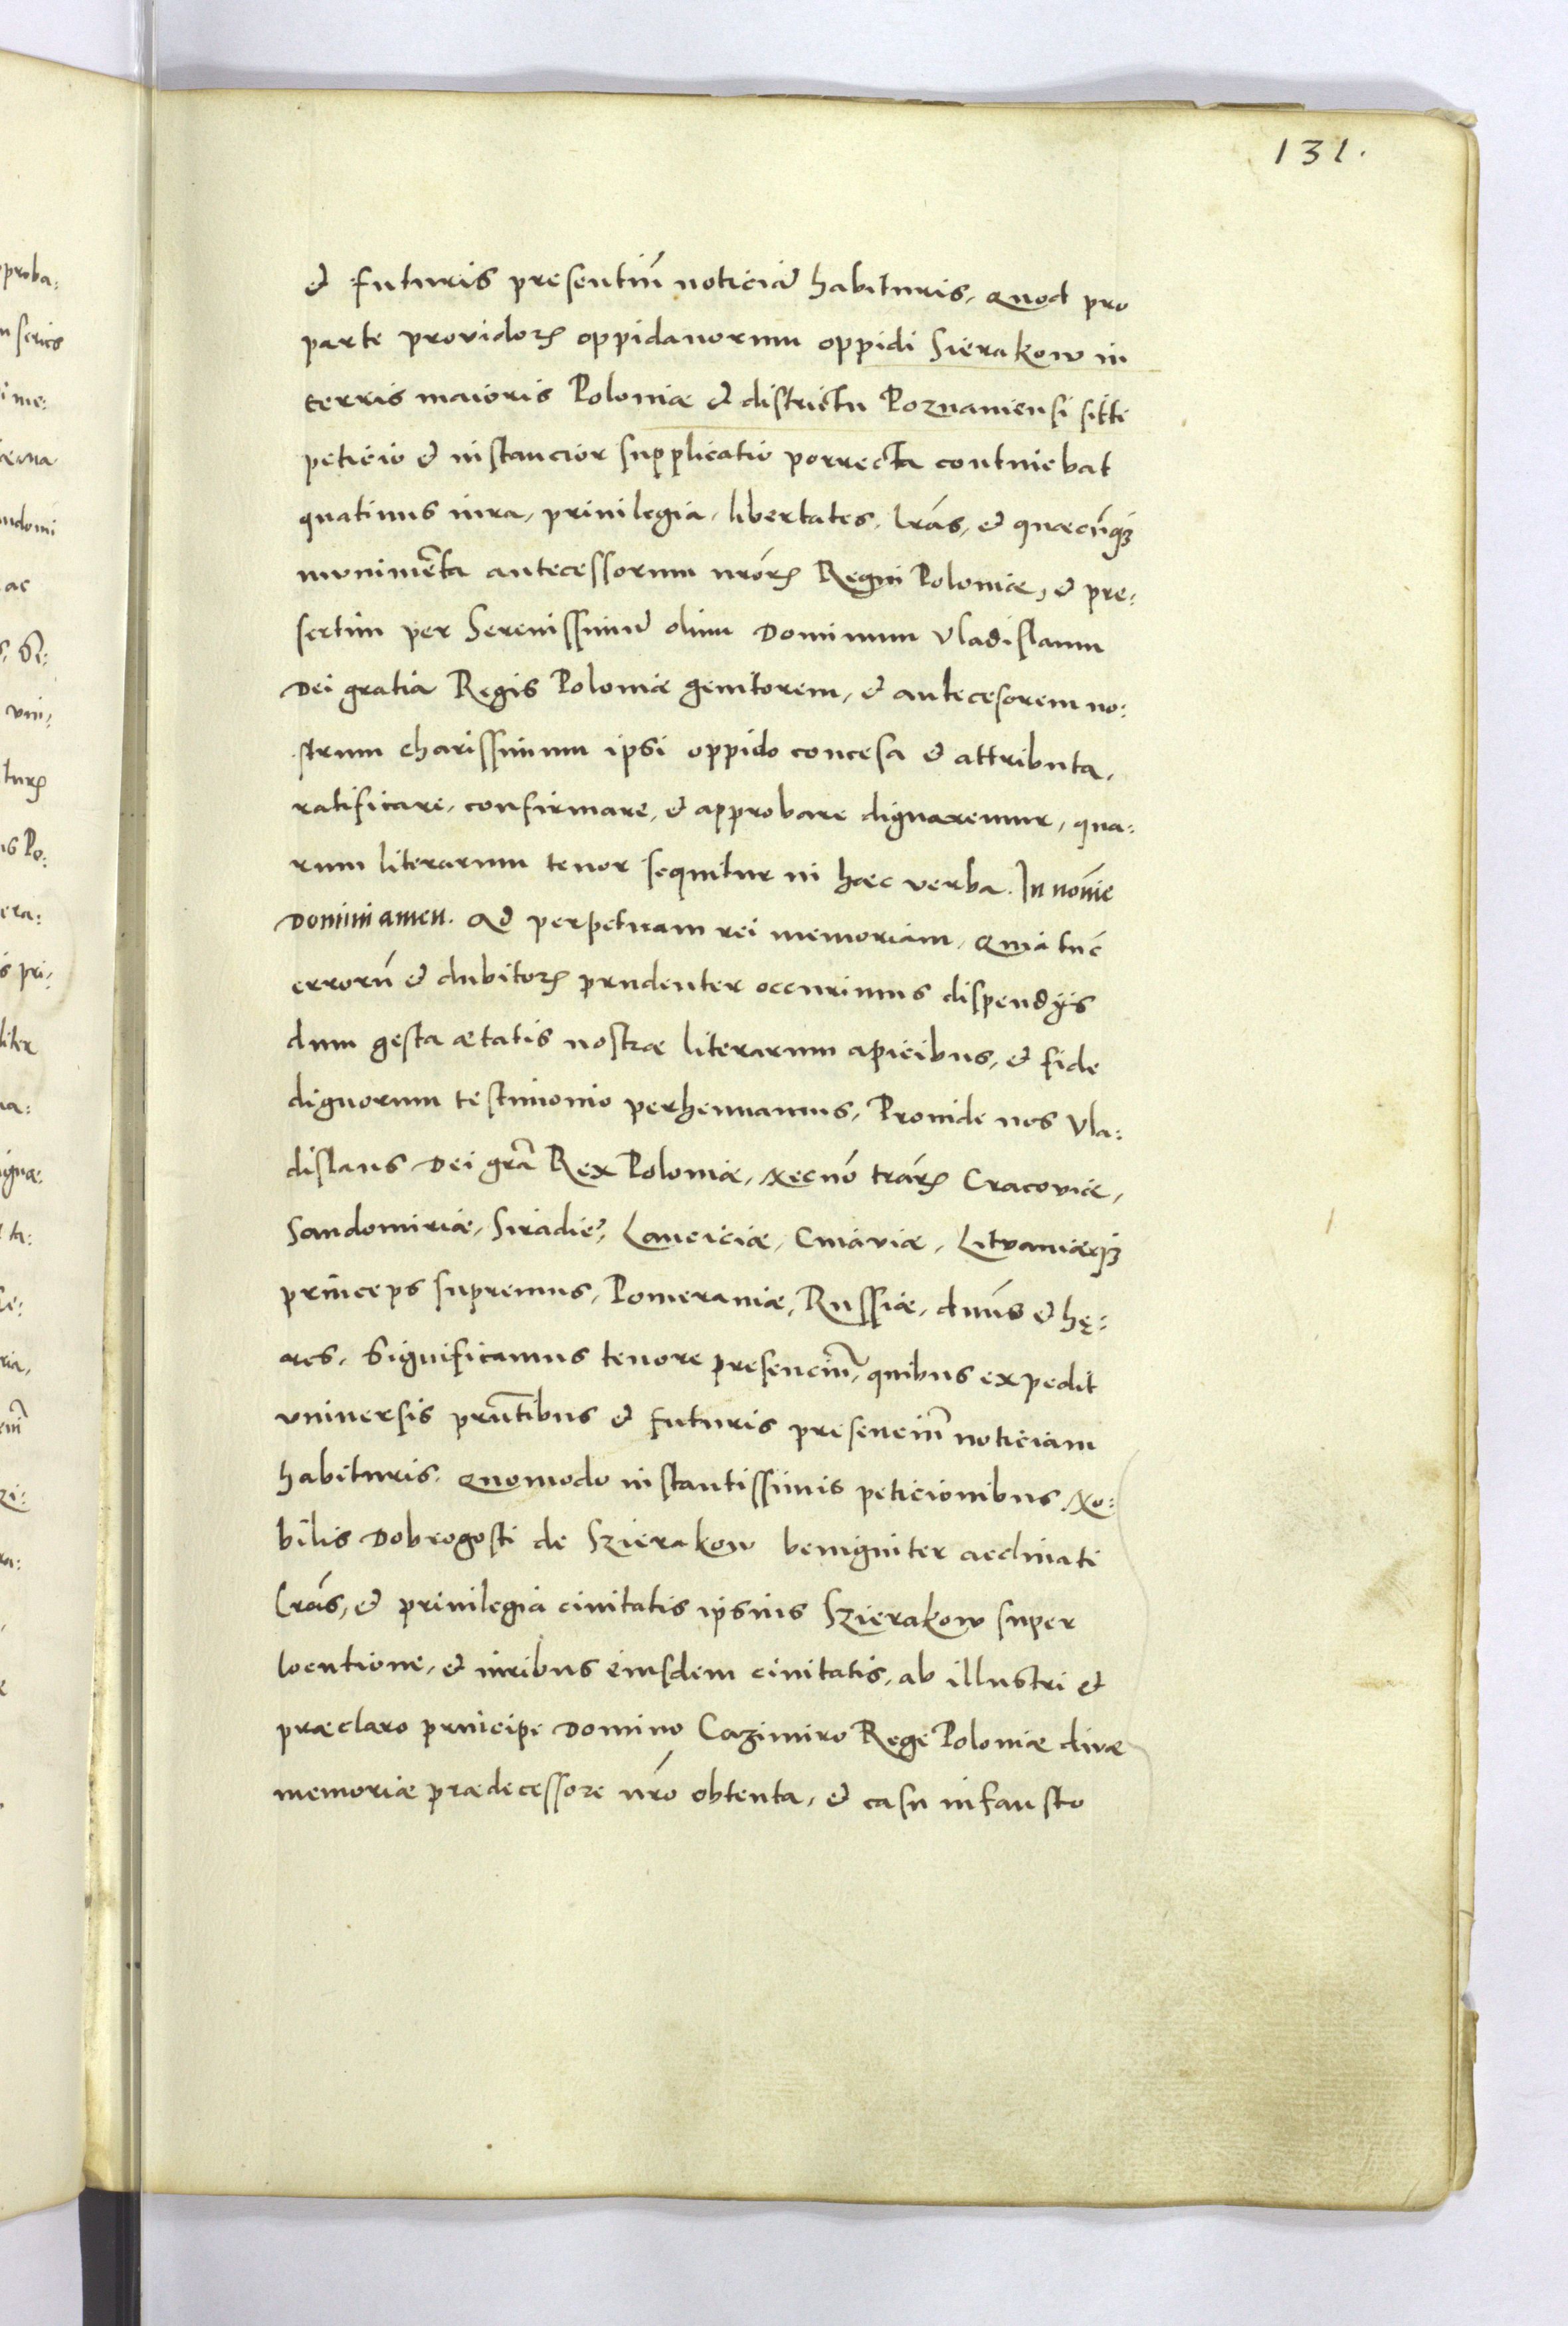 131.
et futuris presentiu͂ noticia͂ habituris, quod pro
parte providoꝝ oppidanorum oppidi Sierakow in
terris maioris Poloniæ et districtu Poznaniensi sitti
peticio et instancior supplicatio porrecta continebat
quatinus iura, privilegia, libertates, lr̃as, et quæcũqꝫ
munime͂ta antecessorum nr̃oꝝ Regni Poloniæ, et pre:
sertim per Serenissimu͂ olim Dominum Vladislaum
Dei gratia Regis Poloniæ genitorem, et antecesorem no:
strum charissimum ipsi oppido concesa et attributa,
ratificare, confirmare, et approbare dignaremur, qua:
rum literarum tenor sequitur in hæc verba. In noı̃e
Domini amen. Ad perpetuam rei memoriam, Quia tũc
erroru͂ et dubitoꝝ prudenter occurimus dispendijs
dum gesta ætatis nostræ literarum apicibus, et fide
dignorum testimonio perhennamus, Proinde nos Vla:
dislaus Dei gr̃a Rex Poloniæ, Necno͂ tr̃aꝝ Cracoviæ,
Sandomiriæ, Siradie͂, Lanciciæ, Cuiaviæ, Litvaniæqꝫ
princeps supremus, Pomeraniæ, Russiæ, dn̄us et hę:
res, Significamus tenore presenciu͂, quibus expedit
universis prñtibus et futuris presenciu͂ noticiam
habituris, Quomodo instantissimis peticionibus No:
bilis Dobrogosti de Szierakow benigniter aeclinati
lr̃as, et privilegia civitatis ipsius Szierakow super
locutione, et iuribus eiusdem civitatis, ab illustri et
præclaro principe Domino Cazimiro Rege Poloniæ divæ
memoriæ prædecessore nr̃o obtenta, et casu infausto